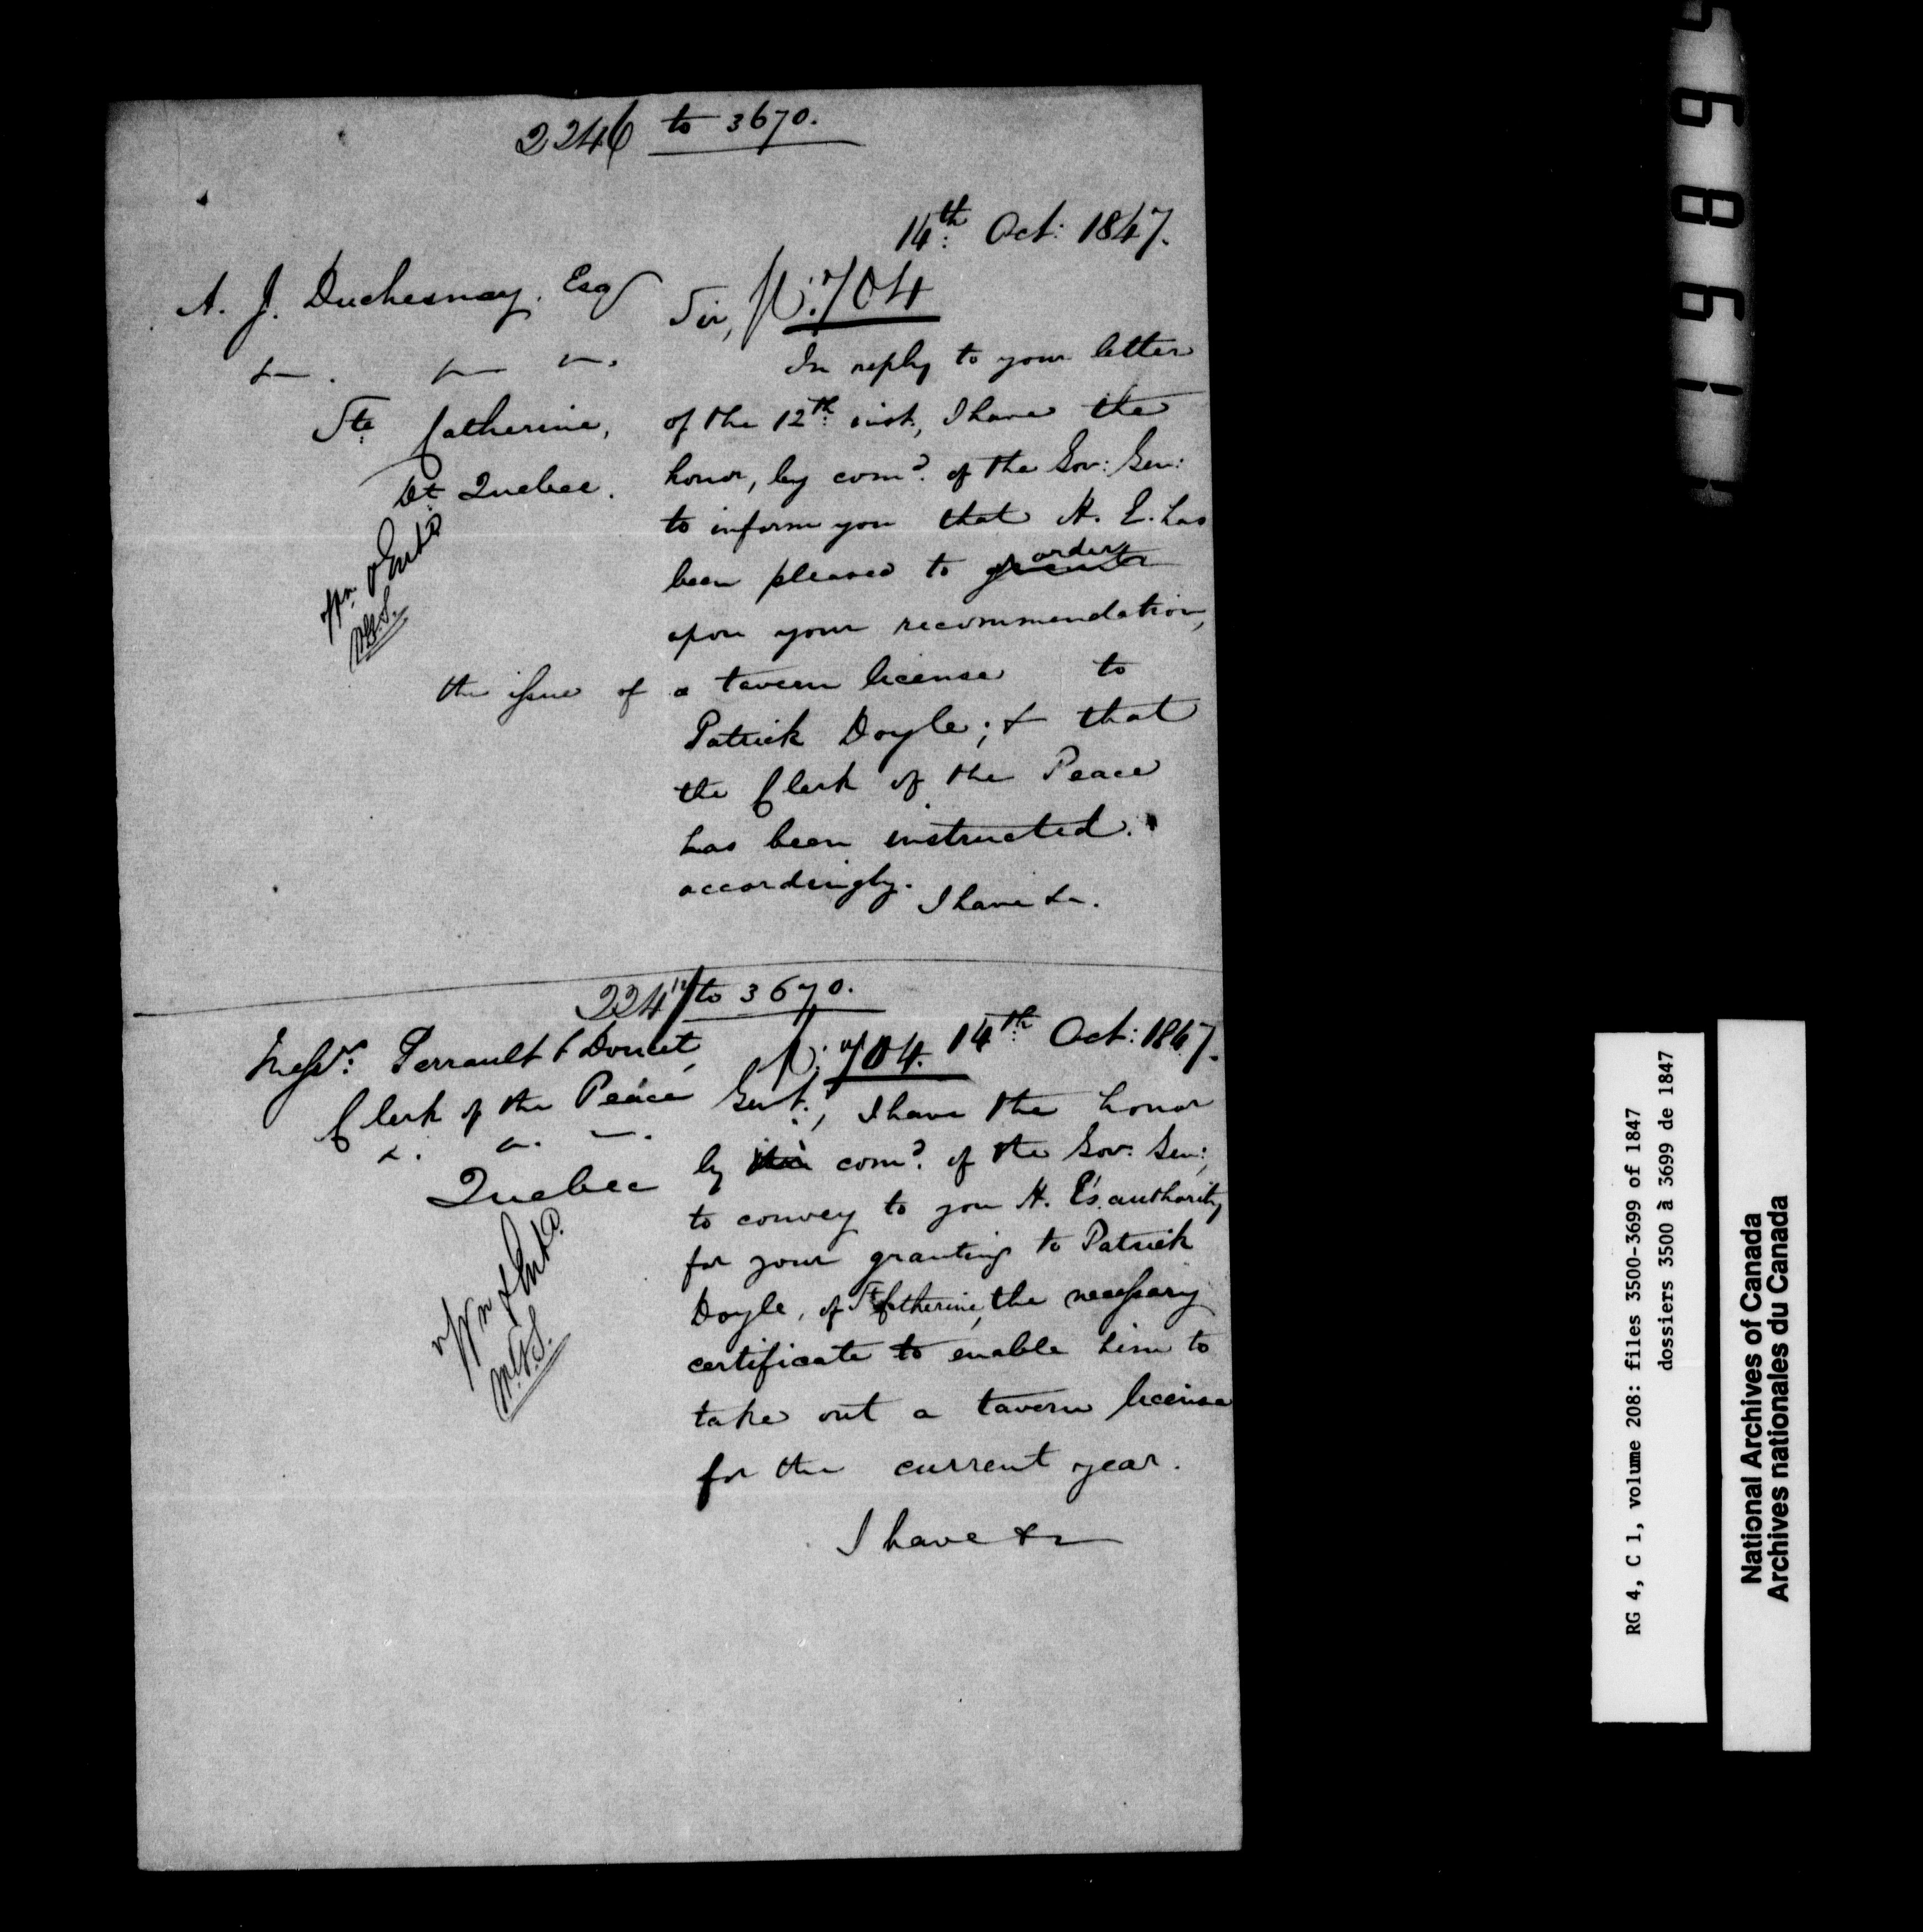 2246 to 3670.
14th: Oct: 1847.
A. J. Duchesnay. Esq
Sir, P: 704
In reply to your letter
Ste Catherine,
of the 12th: inst, I have the
Dt Quebec.
honor, by comd. of the Gov: Gen:
to inform you that H. E. has
been pleased to grant order
upon your recommendation,
the issue of a tavern license to
Patrick Doyle; & that
the Clerk of the Peace
has been instructed.
accordingly.
I have &c.
2247 to 3670.
Messrs: Perrault & Doucet,
P: 704. 14th: Oct: 1847.
Clerk of the Peace
Gent:, I have the honor
&. &. &.
by comd. of the Gov: Gen:,
Quebec
to convey to you H. E's. authority
for your granting to Patrick
Doyle, of St Catherine, the necessary
certificate to enable him to
take out a tavern license
for the current year.
I have &c
RG 4, C 1, volume 208: files 3500-3699 of 1847
dossiers 3500 à 3699 de 1847
National Archives of Canada
Archives nationales du Canada